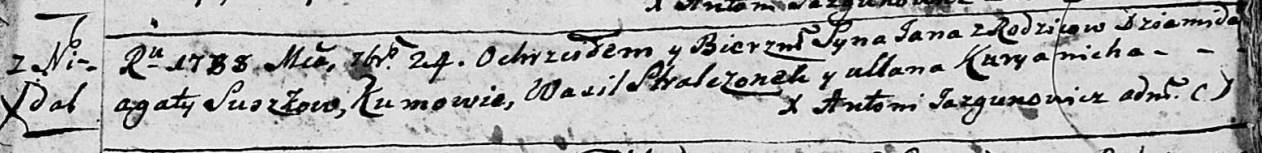 X Antoni Jazgunowicz
z Ni-
dal
Ru 1788 Mca, 7br. 24. Ochrzciłem y Bierzm. Syna Jana z Rodzicow Dziamida
agaty Suszkow, Kumowie, Wasil Stralczonek y ullana Kuryanicha - - -
X Antoni Jazgunowicz adm. ( )